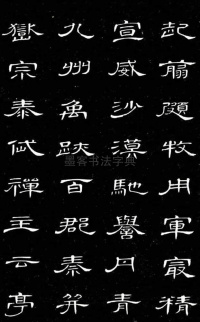 起翦頗牧用軍最精
宣威沙漠馳譽丹青
九州禹跡百郡秦并
嶽宗泰岱禪主云亭
墨客书法字典